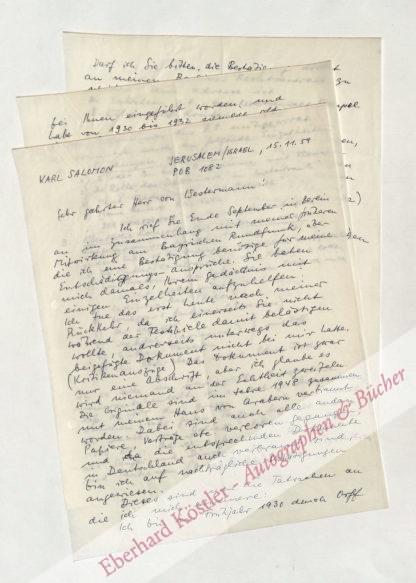 Darf ich Sie bitten, die Bestätig
an meinen
bei Ihnen eingeführt worden und
habe von 1930 bis 1932
KARL SALOMON
JERUSALEM/ISRAEL, 15.11.59
POB 1082
Sehr geehrter Herr von Westermann!
Ich rief Sie Ende September in Berlin
an im Zusammenhang mit meiner früheren
Mitwirkung am Bayrischen Rundfunk, über
die ich eine Bestätigung benötige für meine
Entschädigungs-ansprüche. Sie baten
mich damals, Ihrem Gedächtnis mit
einigen Einzelheiten aufzuhelfen.
Ich tue das erst heute nach meiner
Rückkehr, da ich einerseits Sie nicht
während der Festspiele damit belästigen
wollte, andrerseits unterwegs das
beigefügte Dokument nicht bei mir hatte.
(Kritikenauszüge) Das Dokument ist zwar
nur eine Abschrift, aber ich glaube es
wird niemand an der Echtheit zweifeln.
Die Originale sind im Jahre 1948 zusammen
mit meinem Haus von Arabern verbrannt
worden. Dabei sind auch alle andren
Papiere, Verträge etc verloren gegangen
und da die entsprechenden Dokumente
in Deutschland auch verbrannt sind,
bin ich auf nachträgliche
angewiesen.
Dieses sind die Tatsachen an
die ich mich erinnere:
Ich bin Frühjahr 1930 durch Orff
Eberhard Köstler - Autographen & Bücher